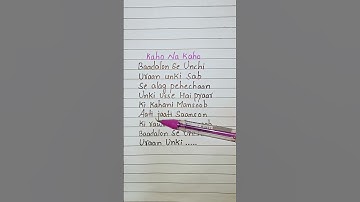 Kaho Na Kaho
Baadalon Se Unchi
Uraan unki Sab
Se alag pehechaan
Unki usse Hai pyaar
Ki Kahani Mansoob
Aati jaati Saanson
Ki
Baadalon Se
Uraan Unki.....